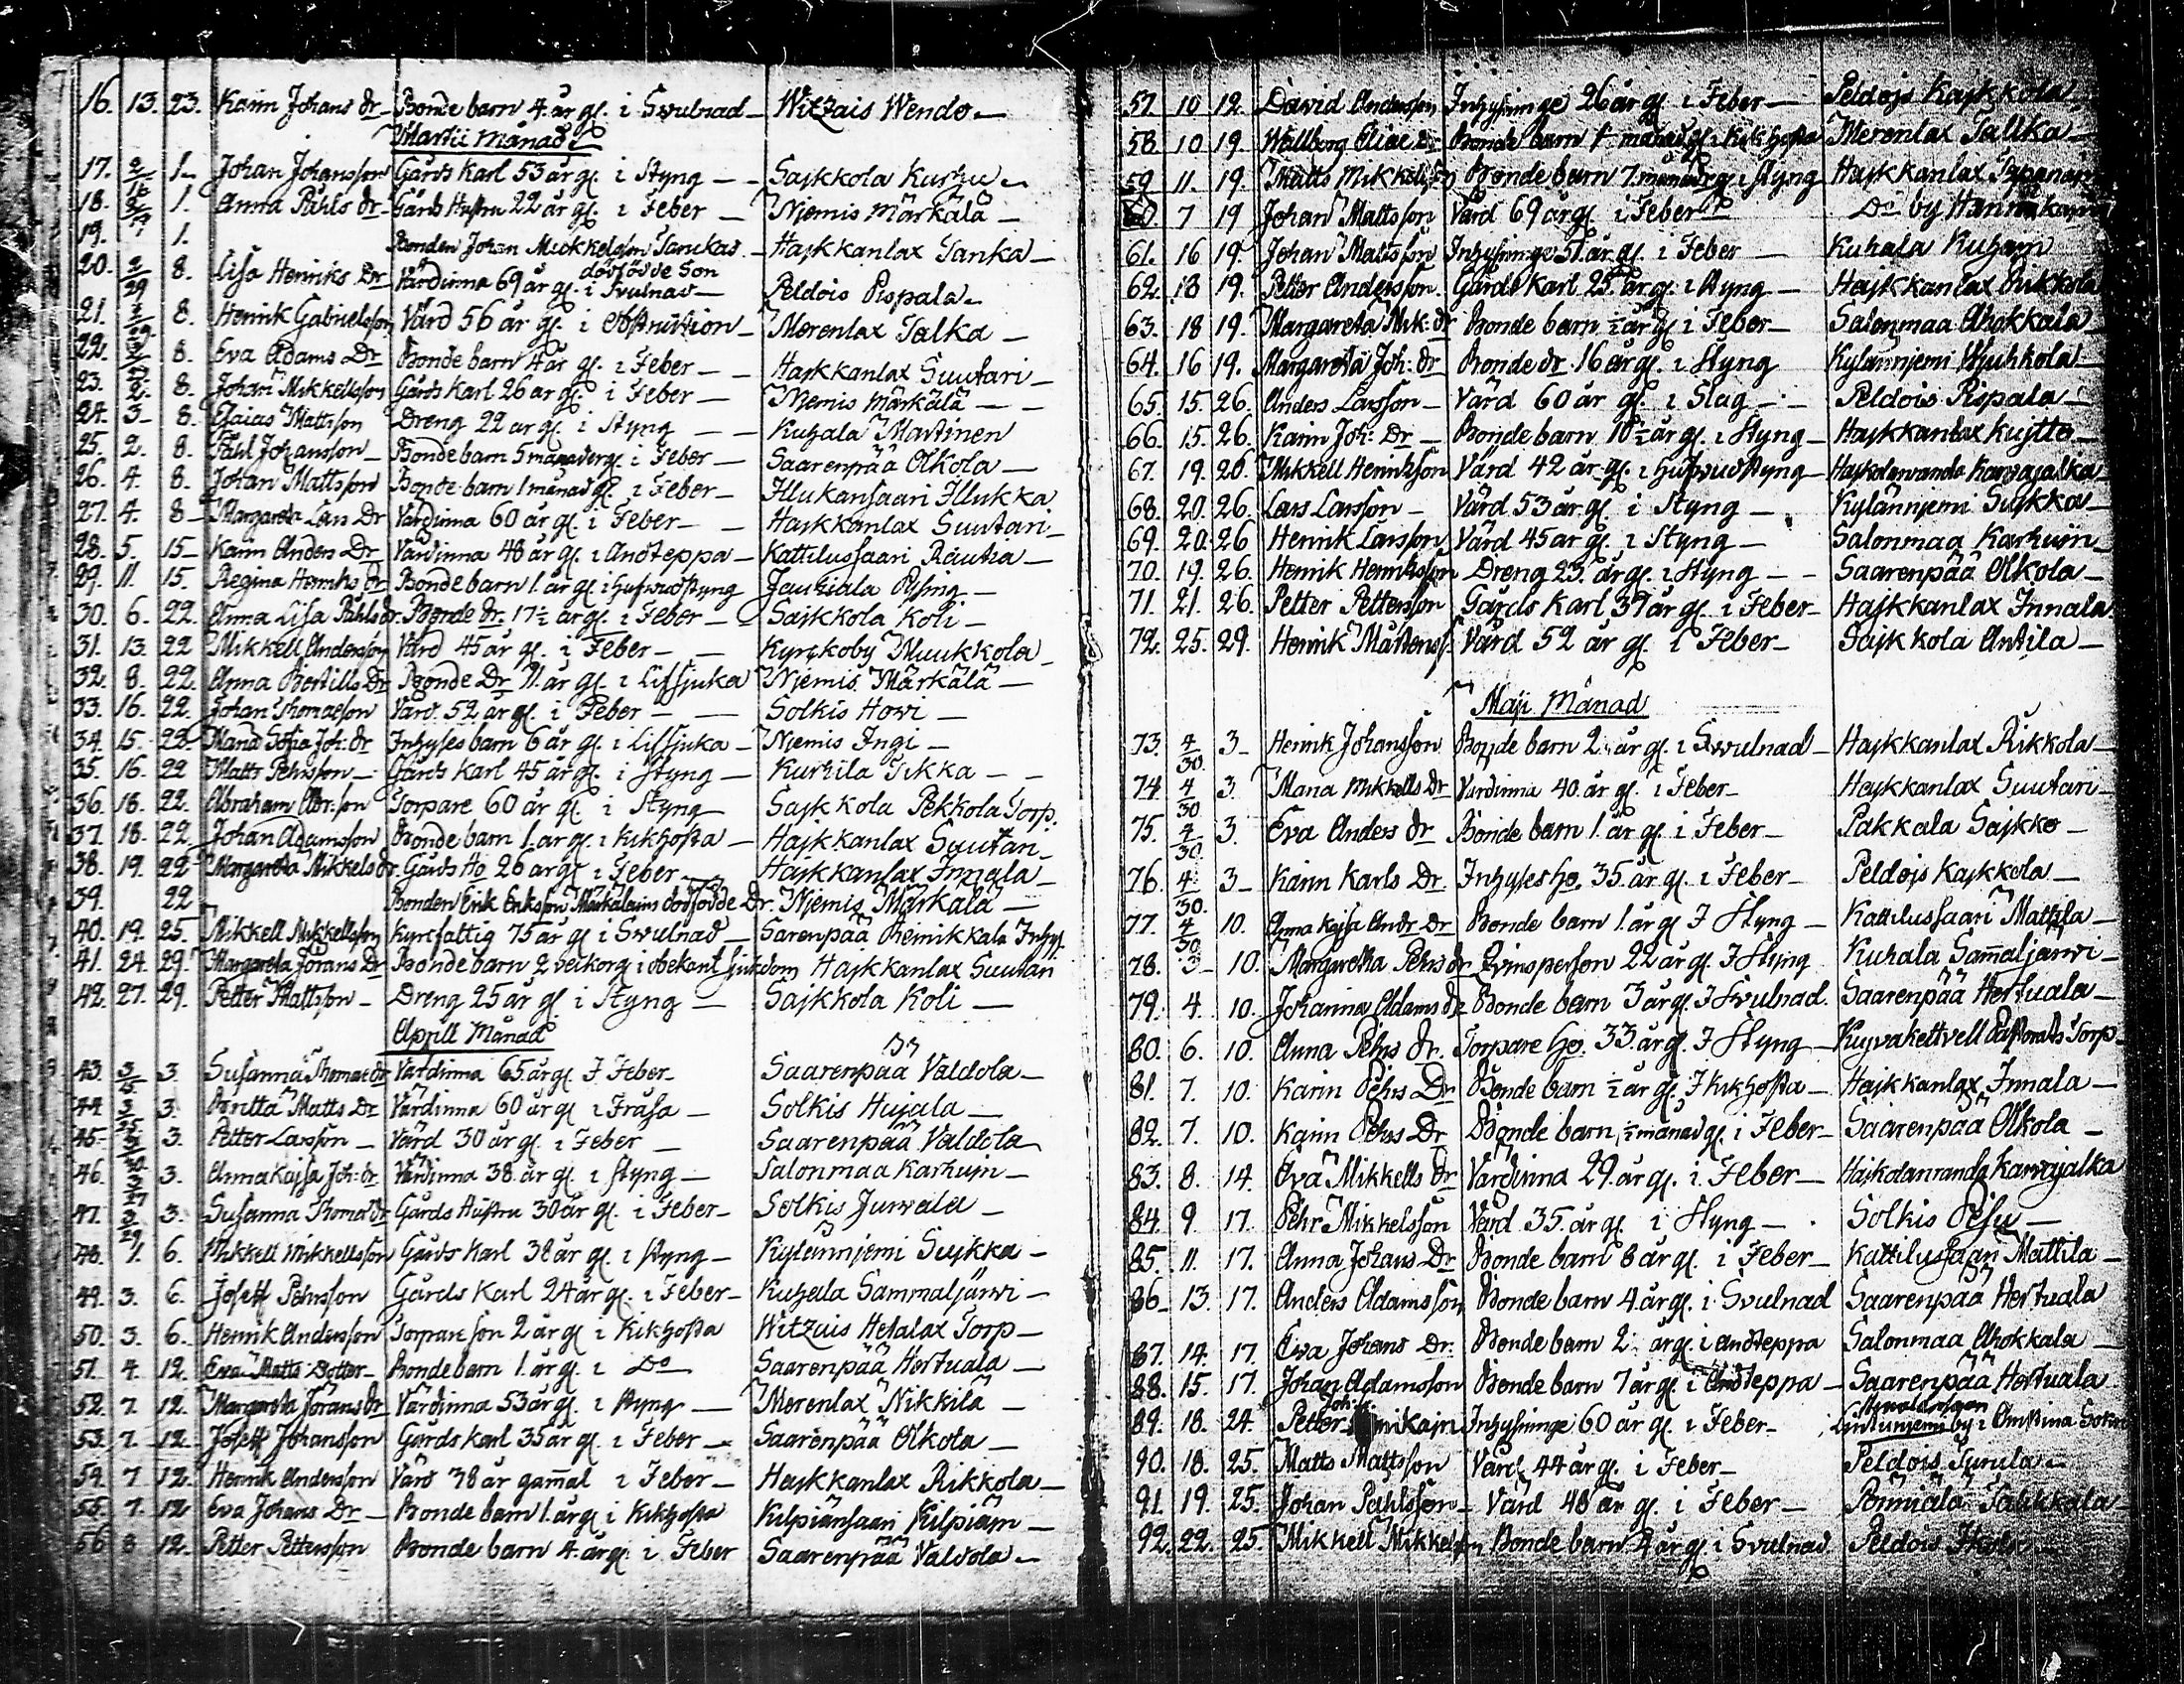 16. 13. 23. Karin Johans dr Bonde barn 4 år gl. i Svulnad Witzais Wendo
Martii Månad
17. 2/16 1. Johan Johansson Gårds Karl 53 år gl. i Styng Sajkkola Kurhu
18. 1. Anna Påhls dr Gårds Hustru 22 år gl. i Feber Njemis Märkälä
19. 1. Bonden Johan Mickelsson Tanskas dödfödde Son Hajkkanlax Tanska
20. 2/29 8. Lisa Henriks Dr Värdinna 69 år gl. i Svulnad Peldois Pispala
21. 2/29 8. Henrik Gabrielsson Värd 56 år gl. i Obstruction Merenlax Talka
22. 8. Eva Adams Dr Bonde barn 4 år gl. i Feber Hajkkanlax Suutari
23. 2. 8. Johan Mikkellsson Gårds Karl 26 år gl. i Feber Njemis Märkälä
24. 3 8. Esaias Mattsson Dreng 22 år gl. i Styng Kuhala Martinen
25. 2. 8. Påhl Johansson Bonde barn 5 månader gl. i Feber Saarenpää Olkola
26. 4. 8. Johan Mattsson Bonde barn 1 månad gl. i Feber Illukansaari Illukka
27. 4. 8 Margareta Lars Dr Värdinna 60 år gl. i Feber Hajkkanlax Suutari
28. 5. 15 Karin Anders Dr Värdinna 48 år gl. i Andteppa Kattilussaari Räutia
29. 11. 15. Regina Henriks dr Bonde barn 1. år gl. i Hufwudstyng Jauhiala Pysing
30. 6. 22. Anna Lisa Påhls dr. Bonde dr. 17½ år gl. i Feber Sajkkola Koli
31. 13. 22 Mikkell Andersson Värd 45 år gl. i Feber Kyrckoby Muukkola
32. 8. 22. Anna Bertills Dr Bonde Dr 11. år gl. i Lifsjuka Njemis Märkälä
33. 16. 22. Johan Thomasson Värd. 52 år gl. i Feber Solkis Howi
34. 15. 22. Maria Sofia Joh: dr Inhyses barn 6 år gl. i Lifsjuka Njemis Ingi
35. 16. 22 Matts Pehrsson Gårds Karl 45 år gl. i Styng Kurhila Tikka
36. 18. 22. Abraham Abr:son Torpare 60 år gl. i Styng Sajkkola Pekkola Torp.
37. 18. 22. Johan Adamsson Bonde barn 1. år gl. i Kikhosta Hajkkanlax Suutari
38. 19. 22 Margareta Mikkels dr. Gårds Ho 26 år gl. i Feber Hajkkanlax Innala
39. 22 Bonden Erik Eriksson Märkäläins dödfödde Dr. Njemis Märkälä
40. 19. 25. Mikkell Mikkellsson Kyrcfattig 75 år gl. i Svulnad Sarenpää Reinikkala Inhys.
41. 24. 29. Margareta Jörans Dr Bonde barn 2 veckor g. i obekant sjukdom Hajkkanlax Suutari
42. 27. 29. Petter Mattsson Dreng 25 år gl. i Styng Sajkkola Koli
Aprill Månad
43. 3. Susanna Thomas dr Värdinna 65. år gl. I Feber Saarenpää Valdola
44. 3. Britta Matts Dr Värdinna 60 år gl. i Fråsa Solkis Hujala
45. 3/30 3. Petter Larsson Värd 30 år gl. i Feber Saarenpää Valdola
46. 3/27 3. Anna Kajsa Joh: dr Värdinna 38. år gl. i Styng Salonmaa Karhuin
47. 3/29 3. Susanna Thomas dr Gårds Hustru 30 år gl. i Feber Solkis Jurvala
48. 1. 6. Mikkell Mikkellsson Gårds Karl 38 år gl. i Styng Kylännjemi Sujkka
49. 3. 6. Joseff Pehrsson Gårds Karl 24 år gl. i Feber Kuhala Sammaljärvi
50. 3. 6. Henrik Andersson Torpare son 2 år gl. i Kikhosta Witzais Hetalax Torp
51. 4. 12. Eva Matts Dotter Bonde barn 1. år gl. i Do Saarenpää Hertuala
52. 7. 12. Margareta Jörans dr Värdinna 53 år gl. i Styng Merenlax Nikkilä
53. 7 12. Joseff Johansson Gårds Karl 35 år gl. i Feber Saarenpää Olkola
54. 7. 12. Henrik Andersson Värd 38 år gammal i Feber Hajkkanlax Rikkola
55. 7. 12 Eva Johans Dr Bonde barn 1. år gl. i Kikhosta Kilpiänsaari Kilpiäin
56 8 12. Petter Pettersson Bonde barn 4. år gl. i Feber Saarenpää Valdola
57. 10 12. David Andersson Inhysinge 26 år gl. i Feber Peldojs Kajkkola
58. 10 19. Wallborg Eliae Dr Bonde barn 1 månad gl. i Kikhosta Merenlax Talika
59 11. 19. Matts Mikkelsson Bonde barn 7. månad gl. i Styng Hajkkanlax
60. 7 19 Johan Mattsson Värd 69 år gl. i Feber Do by
61. 16 19. Johan Mattsson Inhysinge 51 år gl. i Feber Kuhala Kuhain
62. 18 19. Petter Andersson. Gårds Karl 25. år gl. i Styng Hajkkanlax Rikkola
63. 18 19. Margareta Mik: dr Bonde barn ½ år gl. i Feber Salonmaa Ahokkala
64. 16 19. Margareta Joh: dr Bonde dr. 16 år gl. i Styng Kylännjemi Wjuhkola
65. 15. 26. Anders Larsson Värd 60 år gl. i Slag Peldois Pispala
66. 15. 26. Karin Joh: Dr Bonde barn 10½ år gl. i Styng Hajkkanlax Kujtto
67. 19. 26. Mikkell Henriksson Värd 42 år gl. i Hufwudstyng Hajkolanranda Karvajalka
68. 20. 26. Lars Larsson Värd 53 år gl. i Styng Kylännjemi Sujkka
69. 20. 26 Henrik Larsson Värd 45 år gl. i Styng Salonmaa Karhuin
70. 19. 26. Henrik Henriksson Dreng 23. år gl. i Styng Saarenpää Olkola
71. 21. 26. Petter Pettersson Gårds Karl 37 år gl. i Feber Hajkkanlax Innala.
72. 25. 29. Henrik Mårtenss. Värd 52 år gl. i Feber Sajkkola Antila
Maji Månad
73. 4/30. 3 Henrik Johansson Bonde barn 2. år gl. i Svulnad Hajkkanlax Rikkola
74. 4/30 3. Maria Mikkells Dr Värdinna 40. år gl. i Feber Hajkkanlax Suutari
75. 4/30. 3. Eva Anders dr Bonde barn 1. år gl. i Feber Pakkala Sajkko
76. 4/30. 3 Karin Karls Dr. Inhyses Ho. 35. år gl. i Feber Peldojs Kajkkola
77. 4/30 10. Anna Kajsa Andr. Dr Bonde barn 1. år gl. I Styng Kattilussaari Mattila
78. 3 10. Margaretha Pehrs dr Qvinsperson 22 år gl. I Styng Kuhala Sammaljärvi
79. 4 10. Johanna Adams dr Bonde barn 3 år gl. I Svulnad. Saarenpää Hertuala
80. 6. 10. Anna Pehrs dr. Torpare Ho. 33. år gl. I Styng Kujvakettvell Pastorats Torp
81. 7. 10. Karin Pehrs Dr Bonde barn ½ år gl. I Kikhosta Hajkkanlax Innala
82. 7. 10. Karin Pehrs Dr Bonde barn, ½ månad gl. i Feber Saarenpää Olkola
83. 8. 14. Eva Mikkells dr Värdinna 29. år gl. i Feber Hajkolanranda Karvajalka
84. 9 17. Pehr Mikkelsson Värd 35. år gl. i Styng Solkis Pesu
85. 11. 17. Anna Johans Dr Bonde barn 8 år gl. i Feber Kattilussaari Mattila
86 13. 17. Anders Adamsson Bonde barn 4. år gl. i Svulnad Saarenpää Hertuala
87. 14. 17. Eva Johans Dr. Bonde barn 2 år gl. i Andteppa Salonmaa Ahokkala
88. 15. 17. Johan Adamsson Bonde barn 7 år gl. i Andteppa Saarenpää Hertuala
89. 18. 24. Petter Joh:s. Inhysinge 60 år gl. i Feber by i
90. 18. 25. Matts Mattsson Värd 44 år gl. i Feber Peldois
91. 19. 25. Johan Påhlsson Värd 48 år gl. i Feber
92. 22. 25. Mikkell Mikkelsson Bonde barn 4 år gl. i Svulnad. Peldois